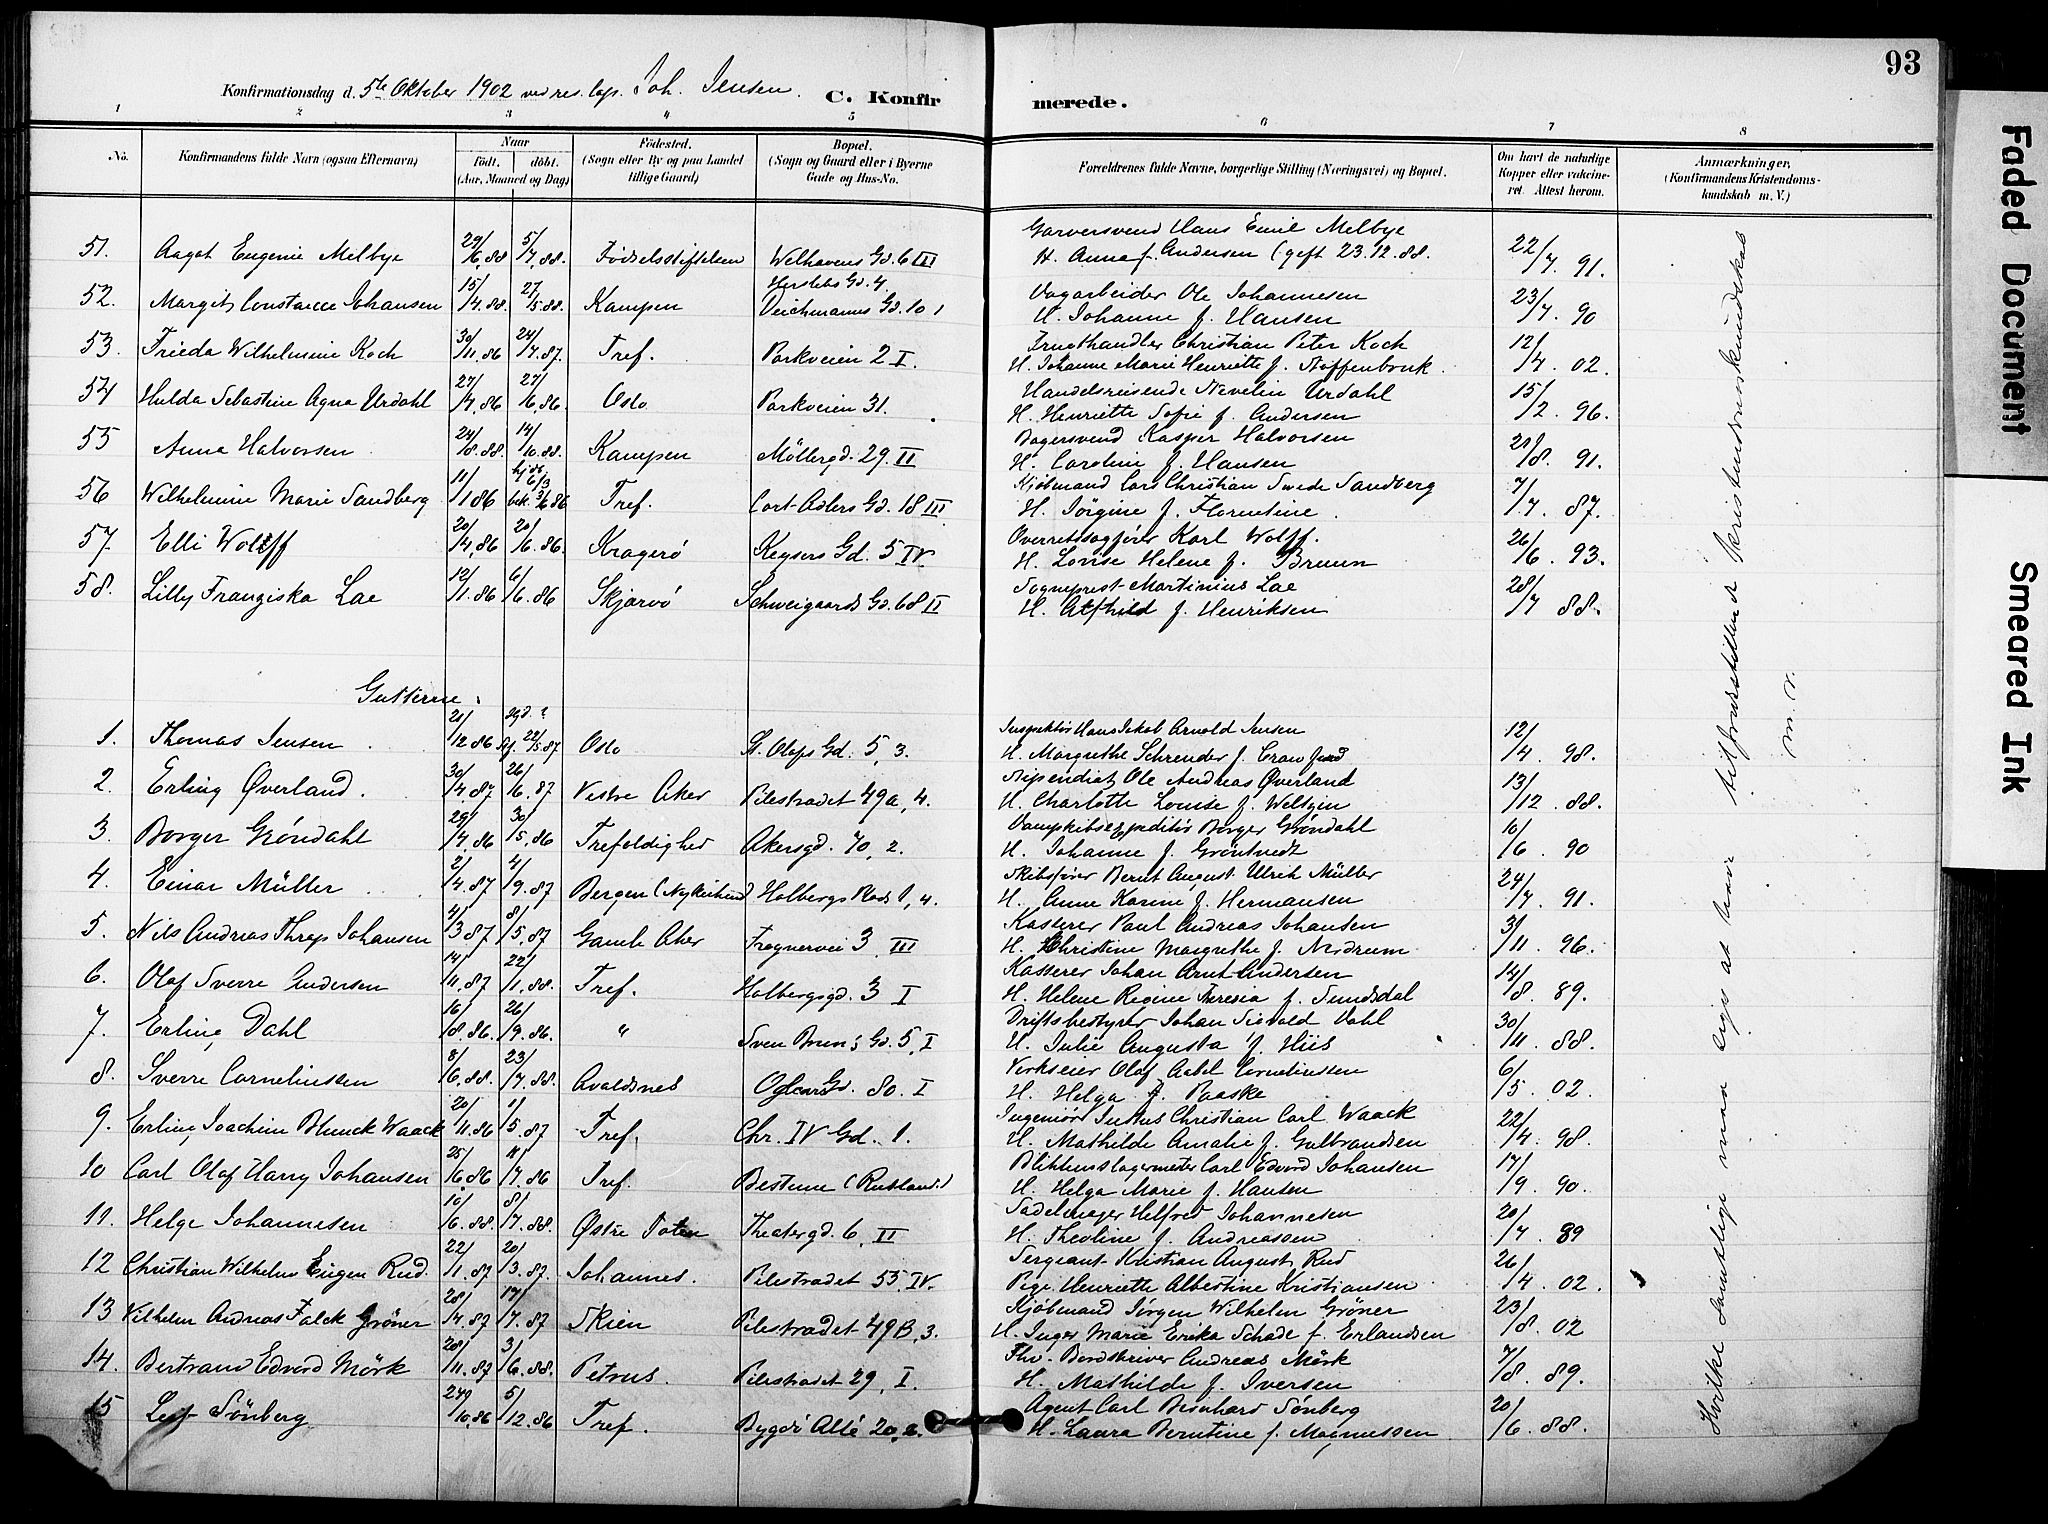 93
Konfirmationsdag d. 5te Oktober 1902 ved res. kap. Joh. Jensen. C. Konfirmerede.
1 2 3 4 5 6 7 8
No. Konfirmandens fulde Navn (ogsaa Efternavn) Naar födt. döbt. (Aar, Maaned og Dag) Födested. (Sogn eller By og paa Landet tillige Gaard) Bopæl. (Sogn og Gaard eller i Byerne Gade og Hus-No. Forældrenes fulde Navne, borgerlige Stilling (Næringsvei) og Bopæl. Om havt de naturlige Kopper eller vakcineret. Attest herom. Anmærkninger, (Konfirmandens Kristendomskundskab m. V.)
51. Aagot Eugenie Melbye 29/6.88 5/7.88. Födselsstiftelsen Welhavens Gd. 6 III Garversvend Hans Emil Melbye
H. Anna f. Andersen (gift 23.12.88. 22/7. 91.
52. Margit Constance Johansen 15/4.88. 27/5.88. Kampen Herslebs Gd. 4. Deichmanns Gd. 10, 1 Vognarbeider Ole Johannesen
H. Johanne f. Hansen 23/7. 90
53. Frieda Wilhelmine Koch 30/11.86 24/7.87. Tref. Parkveien 2 I. Frugthandler Christian Peter Koch
H. Johanne Marie Henriette f. Stoffenbrouk. 12/4. 02.
54 Hulda Sebastine Agna Urdahl 27/4.86 27/6.86. Oslo Parkveien 31. Handelsreisende Nevelin Urdahl
H. Henriette Sofie f. Andersen 15/2. 96.
55 Anna Halvorsen 24/8.88. 14/10.88. Kampen Möllergd. 29. II Bagersvend Kasper Halvorsen
H. Caroline f. Hansen 21/8. 91.
56 Wilhelmine Marie Sandberg 11/1 86 hj.db. 6/3 bek. 3/6 86 Tref. Cort-Adlers Gd. 18 III Kjöbmand Lars Christian Swede Sandberg
H. Jörgine f. Florentine. 7/7. 87.
57. Elli Wolff 20/4.86 20/6.86. Kragerö Keysers Gd. 5 IV. Overretssagförer Karl Wolff.
H. Lovise Helene f. Bruun 26/6. 93.
58. Lilly Franziska Lae 12/1.86 6/6.86 Skjærvö Schweigaards Gd. 68 II Sogneprest Martinius Lae
H. Alfhild f. Henriksen 28/7 88.
Gutterne.
1. Thomas Jensen 21/12 86 22/5 87 Oslo St. Olafs Gd. 5, 3. Inspektör Hans Jakob Arnold Jensen
H. Margrethe Schrender f. Crawfurd 12/4. 98.
2. Erling Øverland. 30/4.87 26/6.87 Vestre Aker Pilestrædet 49a, 4. Stipendiat Ole Andreas Øverland
H. Charlotte Louise f. Weltzin 13/12. 88.
3. Borger Gröndahl 29/4.86 30/5.86 Trefoldighed Akersgd. 70, 2. Dampskibsexpeditör Borger Gröndahl
H. Johanne f. Gröntvedt 10/6. 90
4. Einar Müller 2/4.87 4/9.87 Bergen (Nykirken) Holbergs Plads 1, 4. Skibsförer Bernt August Ulrik Müller
H. Anne Karine f. Hermansen 24/7. 91.
5. Nils Andreas Thrap Johansen 4/3 87 8/5.87 Gamle Aker Frognervei 3 III Kasserer Paul Andreas Johansen
H. Christine Margrethe f. Modrum 3/11. 96.
6. Olaf Sverre Andersen 14/11.87 22/1.88. Tref. Holbergsgd. 3 I Kasserer Johan Arnt Andersen
H. Helene Regine Theresia f. Sundsdal 14/8. 89.
7. Erling Dahl 16/8.86. 26/9.86. " Sven Bruns Gd. 5, I Driftsbestyrer Johan Sievold Dahl
H. Julie Augusta f. Hiis 30/11. 88.
8. Sverre Corneliussen 8/6.88. 23/7.88. Avaldsnes Gd. 80. I Verkseier Olaf Aabel Corneliussen
H. Helga f. Paaske 6/5. 02.
9. Erling Joachim Blunck Waack 20/11.86 1/5.87 Tref. Chr. IV Gd. 1. Ingeniör Justus Christian Carl Waack
H. Mathilde Amalie f. Gulbrandsen 22/4. 98.
10 Carl Olaf Harry Johansen 25/6.86 11/7.86 Tref. Bestune (Rusland.) Blikkenslagermester Carl Edvard Johansen
H. Helga Marie f. Hansen 17/9. 90.
11. Helge Johannesen 10/6.88. 8/7.88. Østre Toten Theatergd. 6, II Sadelmager Helfred Johannesen
H. Theoline f. Andreassen 20/7. 89
12 Christian Wilhelm Eugen Rud. 22/1.87 20/3.87. Johannes. Pilestrædet 55, IV. Sergeant Kristian August Rud
Pige Henriette Albertine Kristiansen 26/4. 02.
13 Vilhelm Andreas Falck Gröner 28/4.87 17/7.87 Skien Pilestrædet 49B, 3. Kjöbmand Jörgen Wilhelm Gröner
H. Inger Marie Erika Schade f. Erlandsen 23/8. 02
14. Bertrand Edvard Mörk 28/11.87 3/6.88. Petrus. Pilestrædet 29, I. Fhv. Bordskriver Andreas Mörk
H. Mathilde f. Iversen 7/8. 89.
15 Leif Sönberg 24/10.86 5/12.86 Tref. Bygdö Allé 20, 2. Agent Carl Bernhard Sönberg
H. Laura Berntine f. Magnussen 20/6. 88.
Hvilke samtlige maa siges at have tilfredsstillende kristendomskundskab
m. v.
Faded Document
Smeared Ink